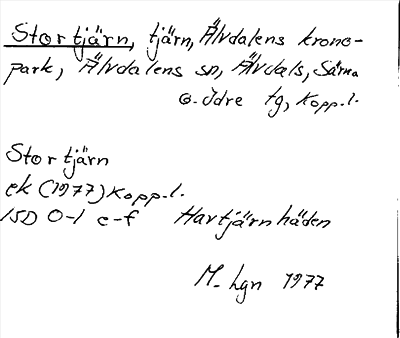 Stortjärn, tjärn, Älvdalens krono-
park, Älvdalens sn, Älvdals, Särna
o. Idre tg, Kopp.l.
Stortjärn
ek (1977) Kopp.l.
15D 0-1 e-f Havtjärnhäden
M. Lgn 1977